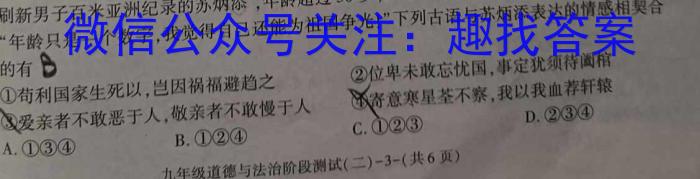 刷新男子百米亚洲纪录的苏炳添
微信公众号关注：趣找答案
"年龄只是一个数字，我觉得自己还能为祖国争光。"下列古语与苏炳添表达的情感相契合
的有 B
①苟利国家生死以，岂因祸福避趋之 ②位卑未敢忘忧国，事定犹须待阖棺
③爱亲者不敢恶于人，敬亲者不敢慢于人 ④寄意寒星荃不察，我以我血荐轩辕
A. ①③④ B. ①②④ C. ①②③ D. ②③④
九年级道德与法治阶段测试(二)-3-(共6页)